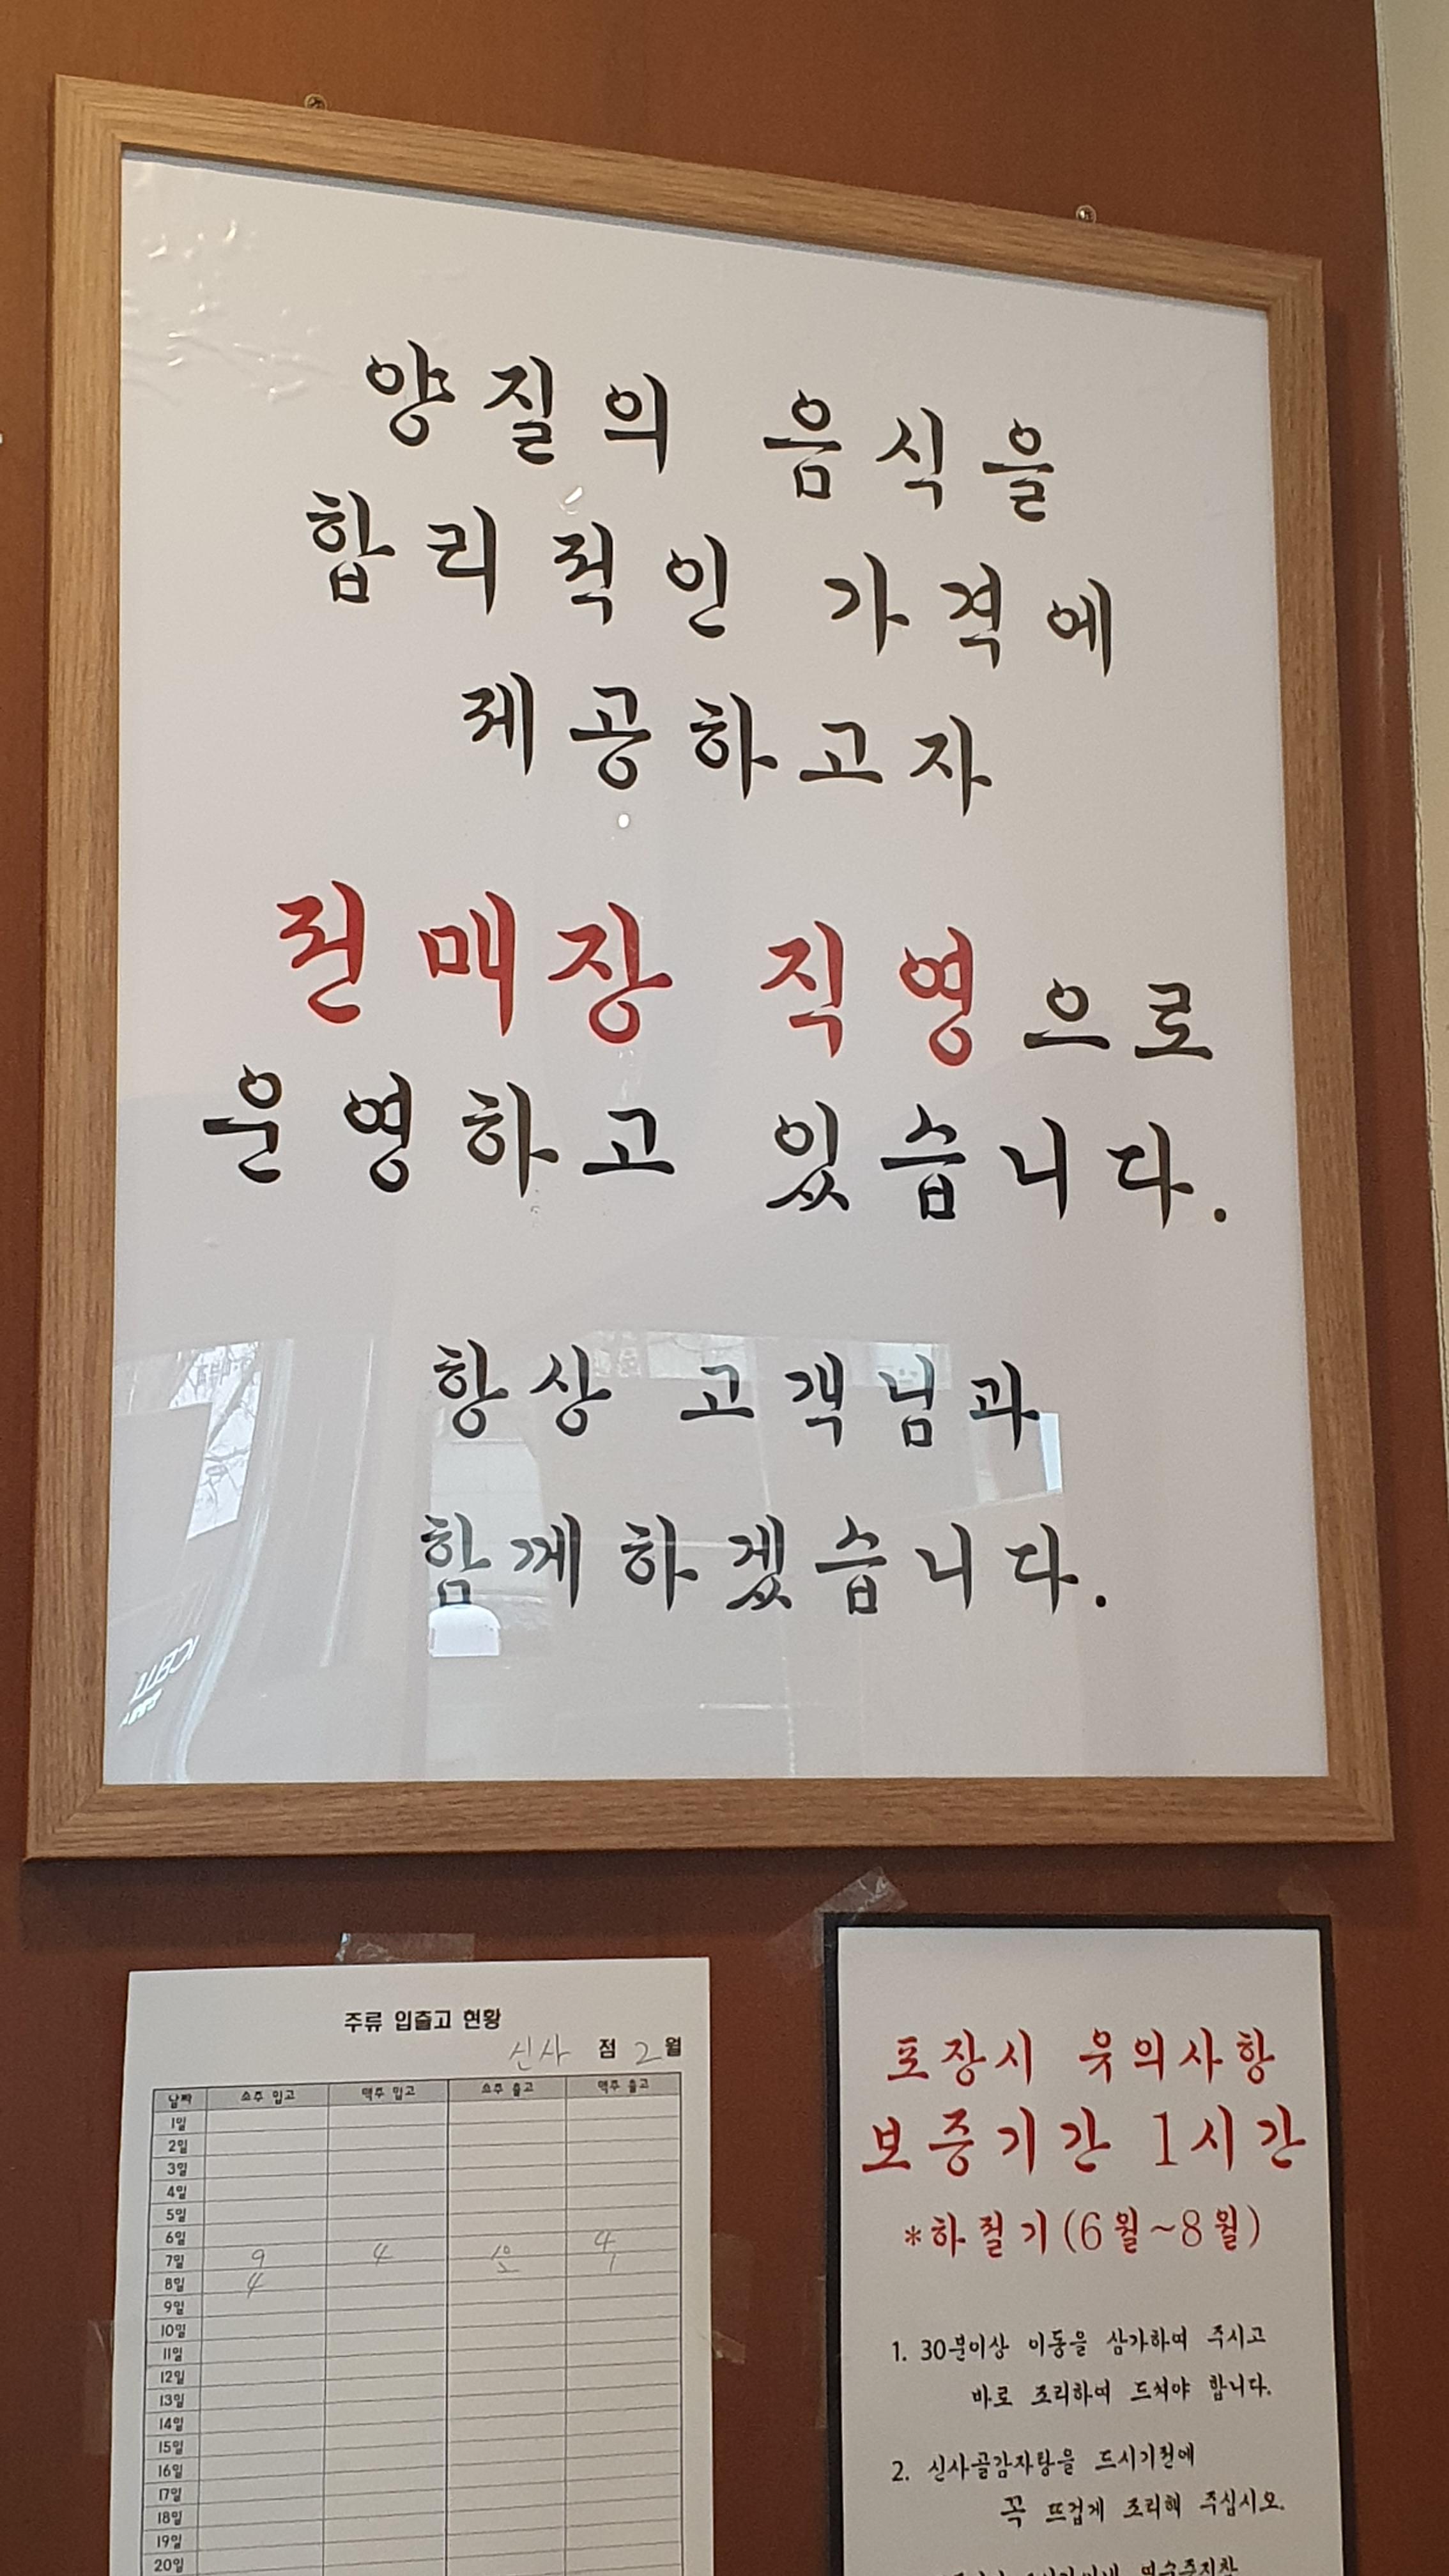 양질의 음식을
합리적인 가격에
제공하고자
전매장 직영으로
운영하고 있습니다.
항상 고객님과
함께하겠습니다.
주류 입출고 현황
신사 점 2월
날짜 소주 입고 맥주 입고 소주 출고 맥주 출고
1일
2일
3일
4일
5일
6일
7일 9 4 4
8일 4 1
9일
10일
11일
12일
13일
14일
15일
16일
17일
18일
19일
20일
포장시 유의사항
보증기간 1시간
*하절기(6월~8월)
1. 30분이상 이동을 삼가하여 주시고
바로 조리하여 드셔야 합니다.
2. 신사골감자탕을 드시기전에
꼭 뜨겁게 조리해 주십시오.